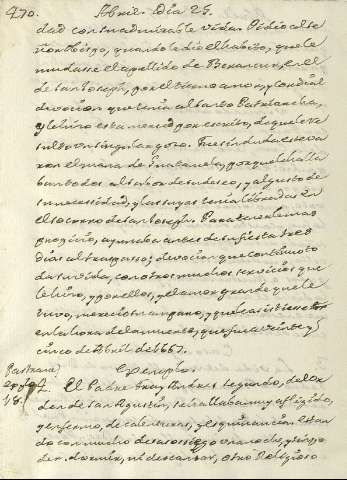 470. Abril. Dia 25.
dad con su admirable vida. Pidió al Se
ñor Obispo, quando le dio el habito, que le
mudasse el apellido de Betancur, en el
de San Joseph, por el tierno amor, y cordial
devocion que tenia al Santo Patriarcha,
y le hizo esta merced por escrito, de que le re
sultó un singular gozo. Fue sin duda este va
ron el maná de Guatemala, porque hallà
ban todos al sabor de su desseo, y al gusto de
su necessidad, y las suyas tenia libradas en
el socorro de San Joseph. Para tenerle mas
propicio, ayunaba antes de su fiesta tres
dias al traspasso; devocion que continuó to
da su vida, con otros muchos servicios que
le hizo, y por ellos, y el amor grande que le
tuvo, mereció su amparo, y que le assistiesse
en la hora de la muerte, que fue a veinte y
cinco de Abril de 1667.
Exemplo.
El Padre Fray Andres
den de San Agustin, se hallaba muy afligido,
y enfermo, de calenturas, y esquinencia. Estan
do con mucho desasossiego una noche, y sin po
der dormir, ni descansar, otro Religioso